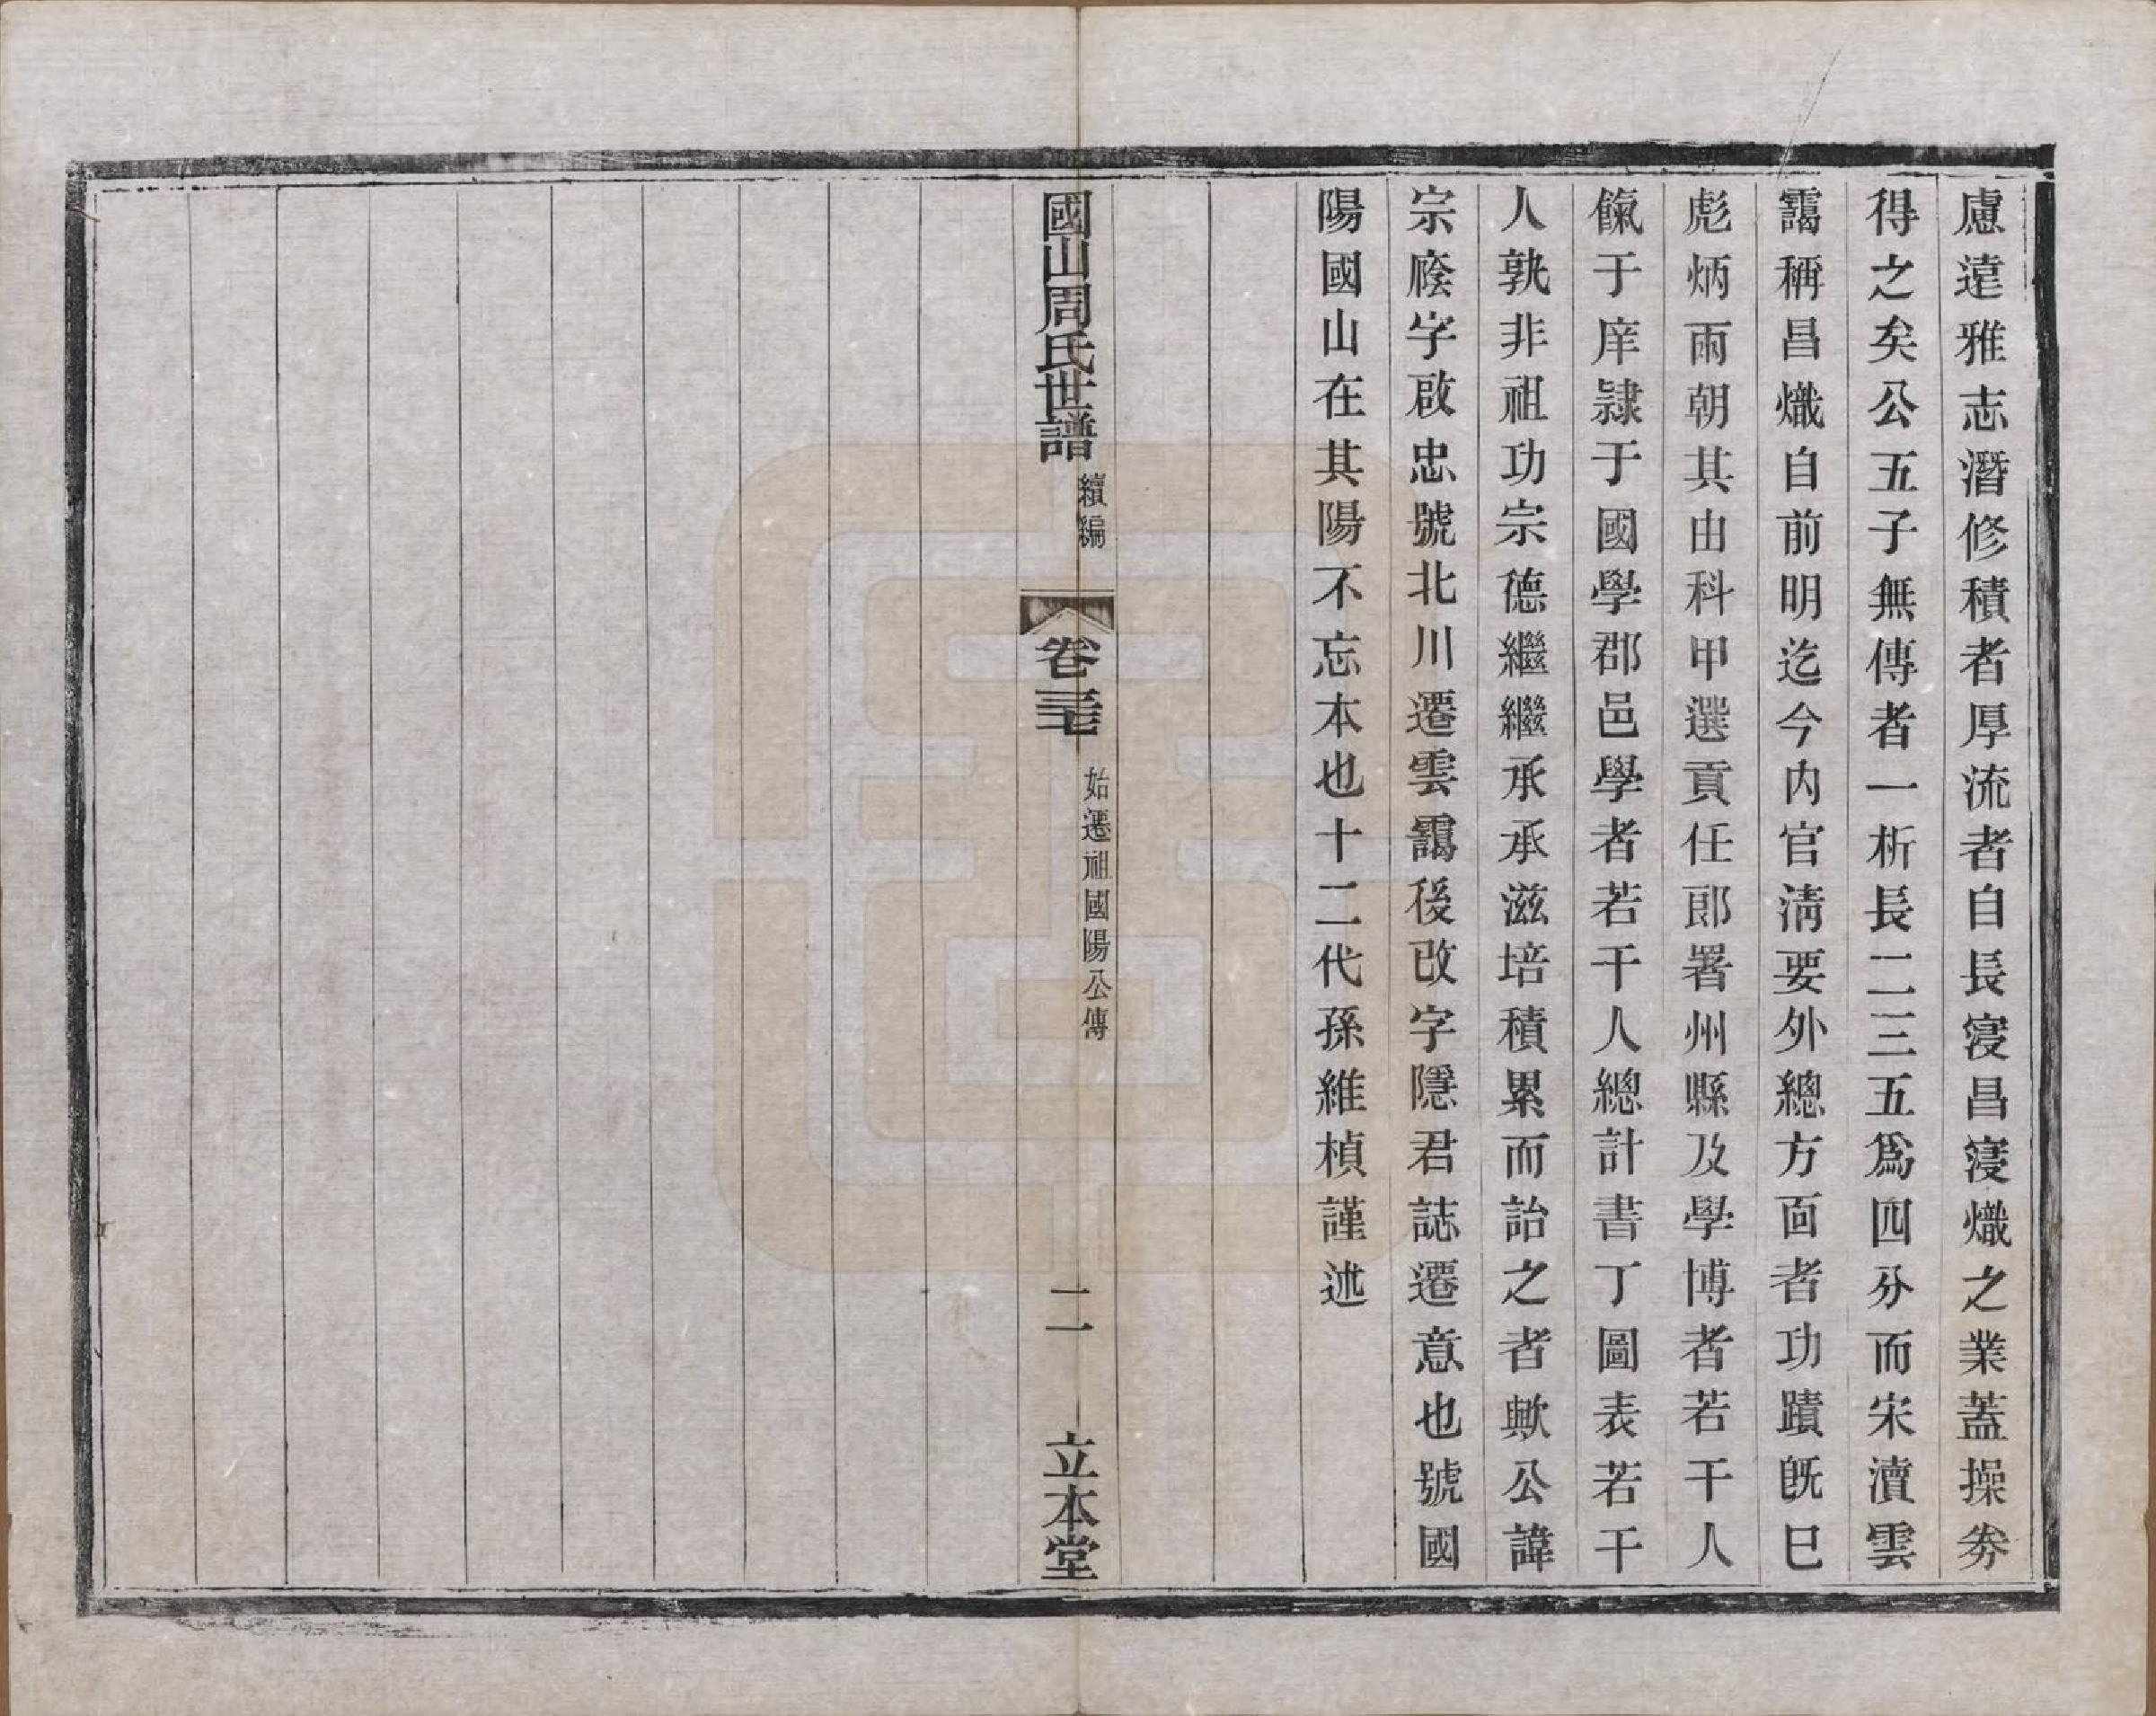 慮遠雅志潛修積者厚流者自長寖昌寖熾之業蓋操券
得之矣公五子無傳者一析長二三五爲四分而宋瀆雲
靄稱昌熾自前明迄今内官淸要外總方面者功蹟旣巳
彪炳兩朝其由科甲選貢任郎署州縣及學博者若干人
餼于庠隸于國學郡邑學者若干人總計書丁圖表若干
人孰非祖功宗德繼繼承承滋培積累而詒之者歟公諱
宗廕字啟忠號北川遷雲靄後改字隱君誌遷意也號國
陽國山在其陽不忘本也十二代孫維楨謹述
國山周氏世譜 續編 卷三七 始遷祖國陽公傳 二 立本堂